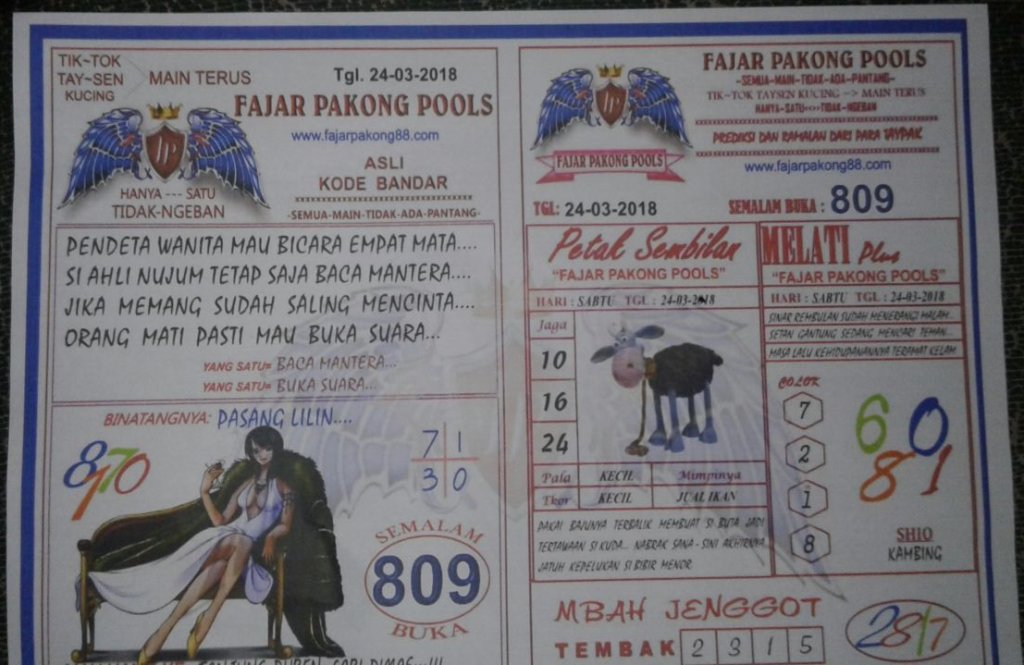 TIK~TOK
TAY~SEN
KUCING
MAIN TERUS
Tgl. 24-03-2018
FAJAR PAKONG POOLS
www.fajarpakong88.com
ASLI
KODE BANDAR
HANYA --- SATU
TIDAK-NGEBAN
-SEMUA-MAIN-TIDAK-ADA-PANTANG-
PENDETA WANITA MAU BICARA EMPAT MATA....
SI AHLI NUJUM TETAP SAJA BACA MANTERA....
JIKA MEMANG SUDAH SALING MENCINTA....
ORANG MATI PASTI MAU BUKA SUARA...
YANG SATU= BACA MANTERA...
YANG SATU= BUKA SUARA...
BINATANGNYA: PASANG LILIN....
8170
7 1
3 0
SEMALAM
809
BUKA
FAJAR PAKONG POOLS
-SEMUA-MAIN-TIDAK-ADA-PANTANG-
TIK~TOK TAYSEN KUCING --> MAIN TERUS
HANYA-SATU<--->TIDAK-NGEBAN
PREDIKSI DAN RAMALAN DARI PARA TAYPAK
FAJAR PAKONG POOLS
www.fajarpakong88.com
TGL: 24-03-2018
SEMALAM BUKA : 809
Petak Sembilan
"FAJAR PAKONG POOLS"
HARI : SABTU TGL : 24-03-2018
Jaga
10
16
24
Pala KECIL Mimpinya
Ekor KECIL JUAL IKAN
PAKAI BAJUNYA TERBALIK MEMBUAT SI BUTA JADI
TERTAWAAN SI KUDA... NABRAK SANA - SINI AKHIRNYA
JATUH KEPELUKAN SI BIBIR MENOR
MELATI Plus
"FAJAR PAKONG POOLS"
HARI : SABTU TGL : 24-03-2018
SINAR REMBULAN SUDAH MENERANGI MALAM...
SETAN GANTUNG SEDANG MENCARI TEMAN...
MASA LALU KEHIDUPANNYA TERAMAT KELAM
COLOK
7
2
1
8
60
81
SHIO
KAMBING
MBAH JENGGOT
TEMBAK 2 3 1 5
2817